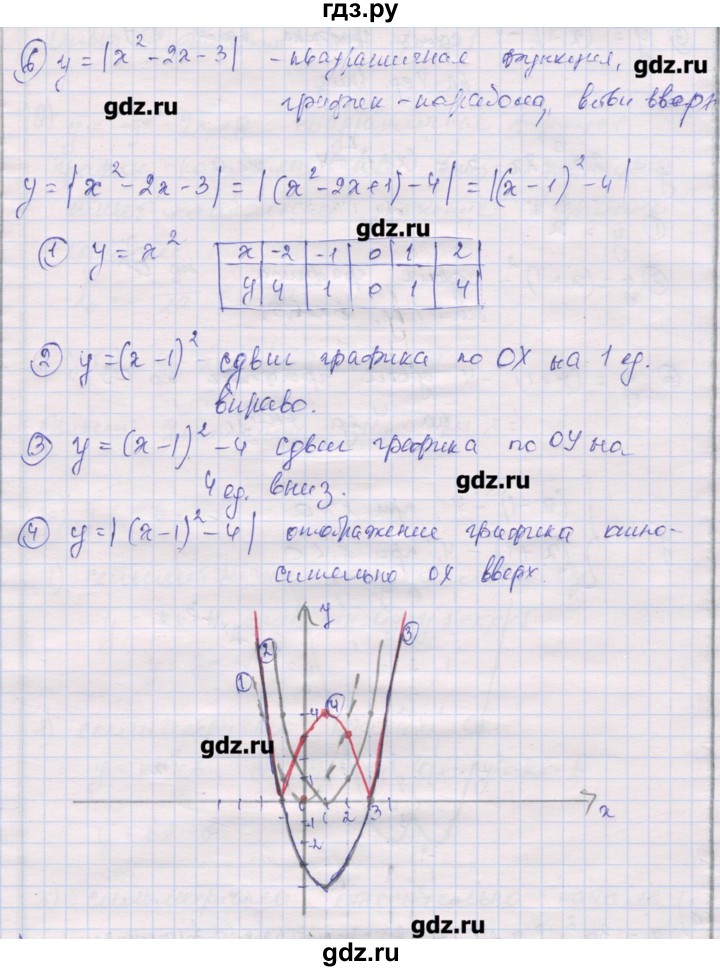 гдз.ру
6 y = |x² - 2x - 3| - квадратичная функция,
gdz.ru график - парабола, ветви вверх
y = |x² - 2x - 3| = |(x² - 2x + 1) - 4| = |(x - 1)² - 4|
gdz.ru
1 y = x² x -2 -1 0 1 2
y 4 1 0 1 4
2 y = (x - 1)² - сдвиг графика по OX на 1 ед.
вправо.
3 y = (x - 1)² - 4 сдвиг графика по OY на
4 ед. вниз. gdz.ru
4 y = |(x - 1)² - 4| отображение графика отно-
сительно OX вверх.
y
2 3
1
4 4
gdz.ru
1
0 1 2 3 x
-1
-2
gdz.ru
gdz.ru